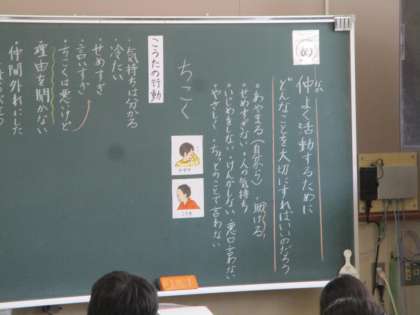 仲よく活動するために
どんなことを大切にすればいいのだろう
・あやまる(自分から)・助ける
・せめすぎない・人の気持ち
・いじめをしない・けんかしない・悪口言わない
・やさしく
ちこく
こうたの行動
・気持ちは分かる
・冷たい
・せめすぎ
・言いすぎ
・ちこくは悪いけど
理由を聞かない
・仲間外れにした